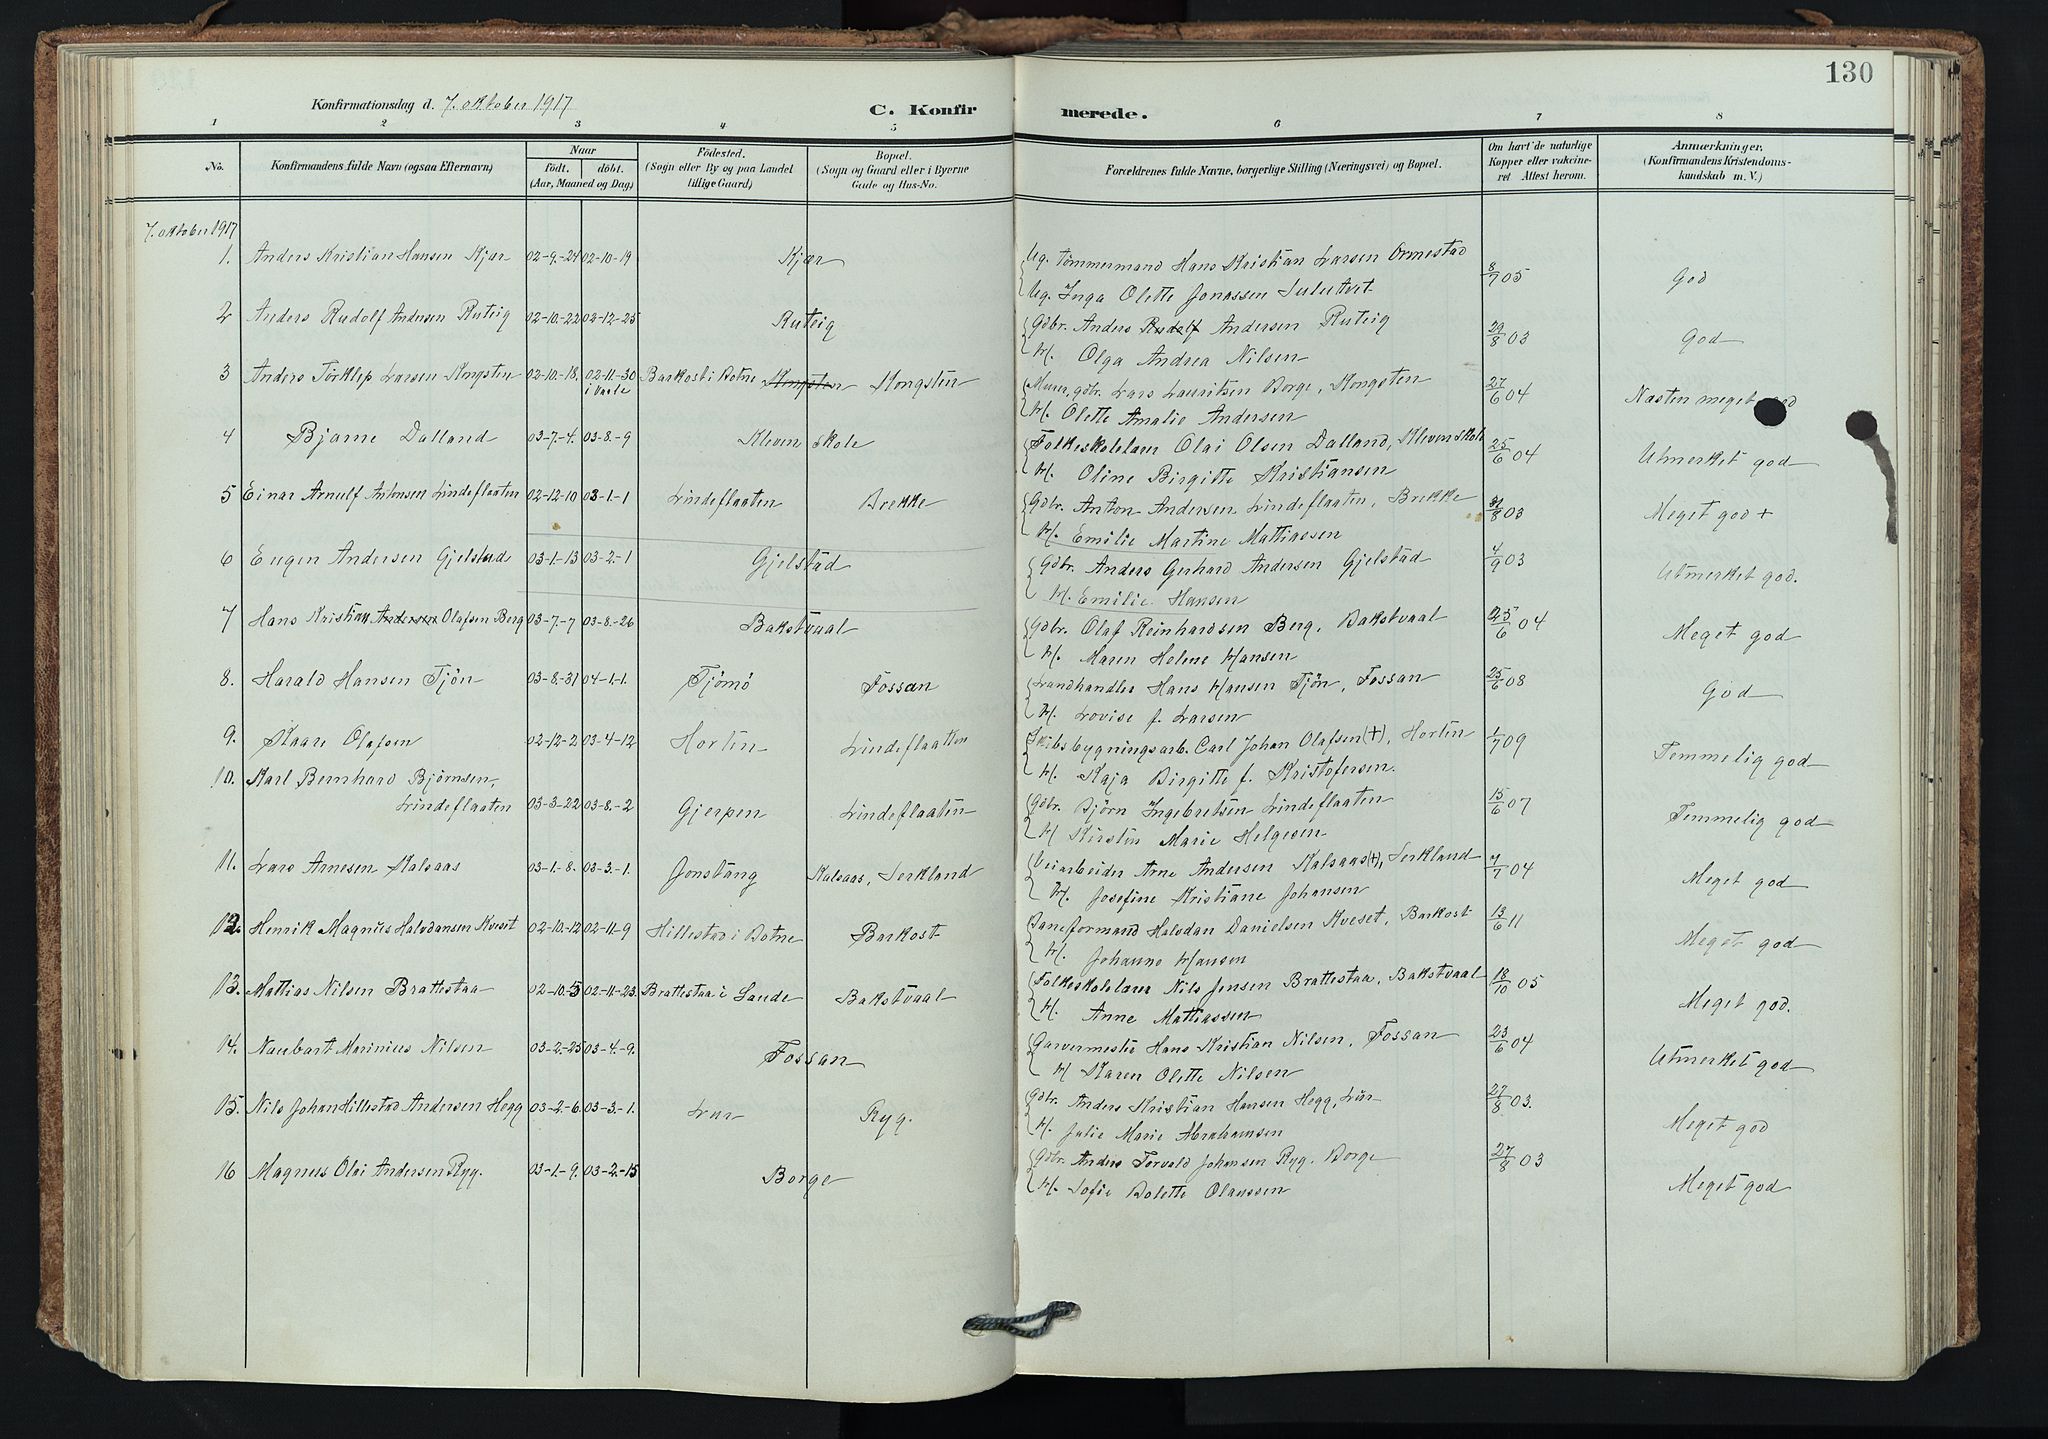 130
Konfirmationsdag d. 7. oktober 1917
C. Konfirmerede.
1 2 3 4 5 6 7 8
No. Konfirmandens fulde Navn (ogsaa Efternavn) Naar födt, döbt. (Aar, Maaned og Dag) Födested. (Sogn eller By og paa Landet tillige Gaard) Bopæl. (Sogn og Gaard eller i Byerne Gade og Hus-No. Forældrenes fulde Navne, borgerlige Stilling (Næringsvei) og Bopæl. Om havt de naturlige Kopper eller vakcineret Attest herom. Anmærkninger, (Konfirmandens Kristendomskundskab m. V.)
7. oktober 1917
1. Anders Kristian Hansen Kjær 02-9-24 02-10-19 Kjær Ug. Tømmermand Hans Kristian Larsen Ormestad 8/7 05 God
Ug. Inga Olette Jonassen
2 Anders Rudolf Andersen Ruteig 02-10-22 02-12-25 Ruteig Gdbr. Anders Rudolf Andersen Ruteig 29/8 03 God
H. Olga Andrea Nilsen
3 Anders Torklep Larsen Kongsten 02-10-18. 02-11-30 i Vaale Barkost i Botne Kongsten Kongsten Murer, gdbr. Lars Lauritsen Borge, Kongsten 27/6 04 Næsten meget god
H. Olette Amalie Andersen
4 Bjarne Dalland 03-7-4. 03-8-9 Kleven skole Folkeskolelærer Olai Olsen Dalland, Kleven skole 25/6 04 Utmerket god
H. Oline Birgitte Kristiansen
5 Einar Arnulf Antonsen Lindeflaaten 02-12-10 03-1-1 Lindeflaaten Brekke Gdbr. Anton Andersen Lindeflaaten, Brekke 03 Meget god +
H. Emilie Martine Mattiassen
6 Eugen Andersen Gjelstad 03-1-13 03-2-1 Gjelstad Gdbr. Anders Gerhard Andersen Gjelstad 4/9 03 Utmerket god.
H. Emilie Hansen
7 Hans Kristian Andersen Olafsen Berg 03-7-7 03-8-26 Bakstvaal Gdbr. Olaf Reinhardsen Berg, Bakstvaal 25/6 04 Meget god
H. Maren Helene Hansen
8. Harald Hansen Tjön 03-8-31 04-1-1. Tjömö Fossan Landhandler Hans Hansen Tjön, Fossan 25/6 08 God
H. Lovise f. Larsen
9. Kaare Olafsen 02-12-2 03-4-12 Horten Lindeflaaten Skibsbygningsarb. Carl Johan Olafsen (+), Horten 1/7 09 Temmelig god
H. Kaja Birgitte f. Kristofersen.
10. Karl Bernhard Bjørnsen,
Lindeflaaten 03-3-22 03-8-2 Gjerpen Lindeflaaten Gdbr. Bjørn Ingebretsen Lindeflaaten 15/6 07 Temmelig god
H Kirstin Marie Helgesen
11. Lars Arnesen Kalsaas 03-1-8. 03-3-1. Jonstang Kalsaas, Serkland Veiarbeider Arne Andersen Kalsaas (+), Serkland 7/7 04 Meget god
H. Josefine Kristiane Johansen
12. Henrik Magnus Halvdansen Kveset 02-10-12 02-11-9 Hillestad i Botne Barkost Baneformand Halvdan Danielsen Kveset, Barkost 13/6 11 Meget god
H. Johanne Hansen
13. Mattias Nilsen Brattestaa 02-10-5 02-11-23. Brattestaa i Sande Bakstvaal Folkeskolelærer Nils Jensen Brattestaa, Bakstvaal 18/10 05 Meget god.
H. Anne Mattiassen
14. Naubart Marinius Nilsen 03-2-25 03-4-9. Fossan Garvermester Hans Kristian Nilsen, Fossan 23/6 04 Utmerket god
H Karen Olette Nilsen
15. Nils Johan Hillestad Andersen Hegg 03-2-6. 03-3-1. Lur Ryg. Gdbr. Anders Kristian Hansen Hegg, Lur 27/8 03. Meget god
H. Julie Marie Abrahamsen
16 Magnus Olai Andersen Ryg. 03-1-9. 03-2-15 Borge Gdbr. Anders Torvald Johansen Ryg. Borge 27/8 03 Meget god
H. Sofie Bolette Olaussen